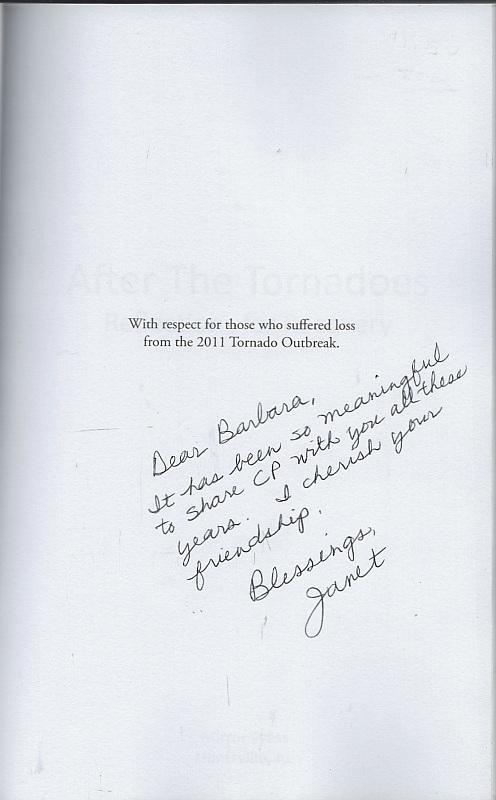 After The Tornadoes
With respect for those who suffered loss
from the 2011 Tornado Outbreak.
Dear Barbara,
It has been so meaningful
to share CP with you all these
years. I cherish your
friendship.
Blessings,
Janet